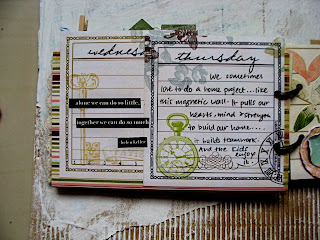 wednes
alone we can do so little,
together we can do so much
helen keller
thursday
We sometimes
love to do a home project....like
this magnetic wall. It pulls our
hearts, mind & strength
to build our home....
it builds teamwork.
And the kids
enjoy
it.